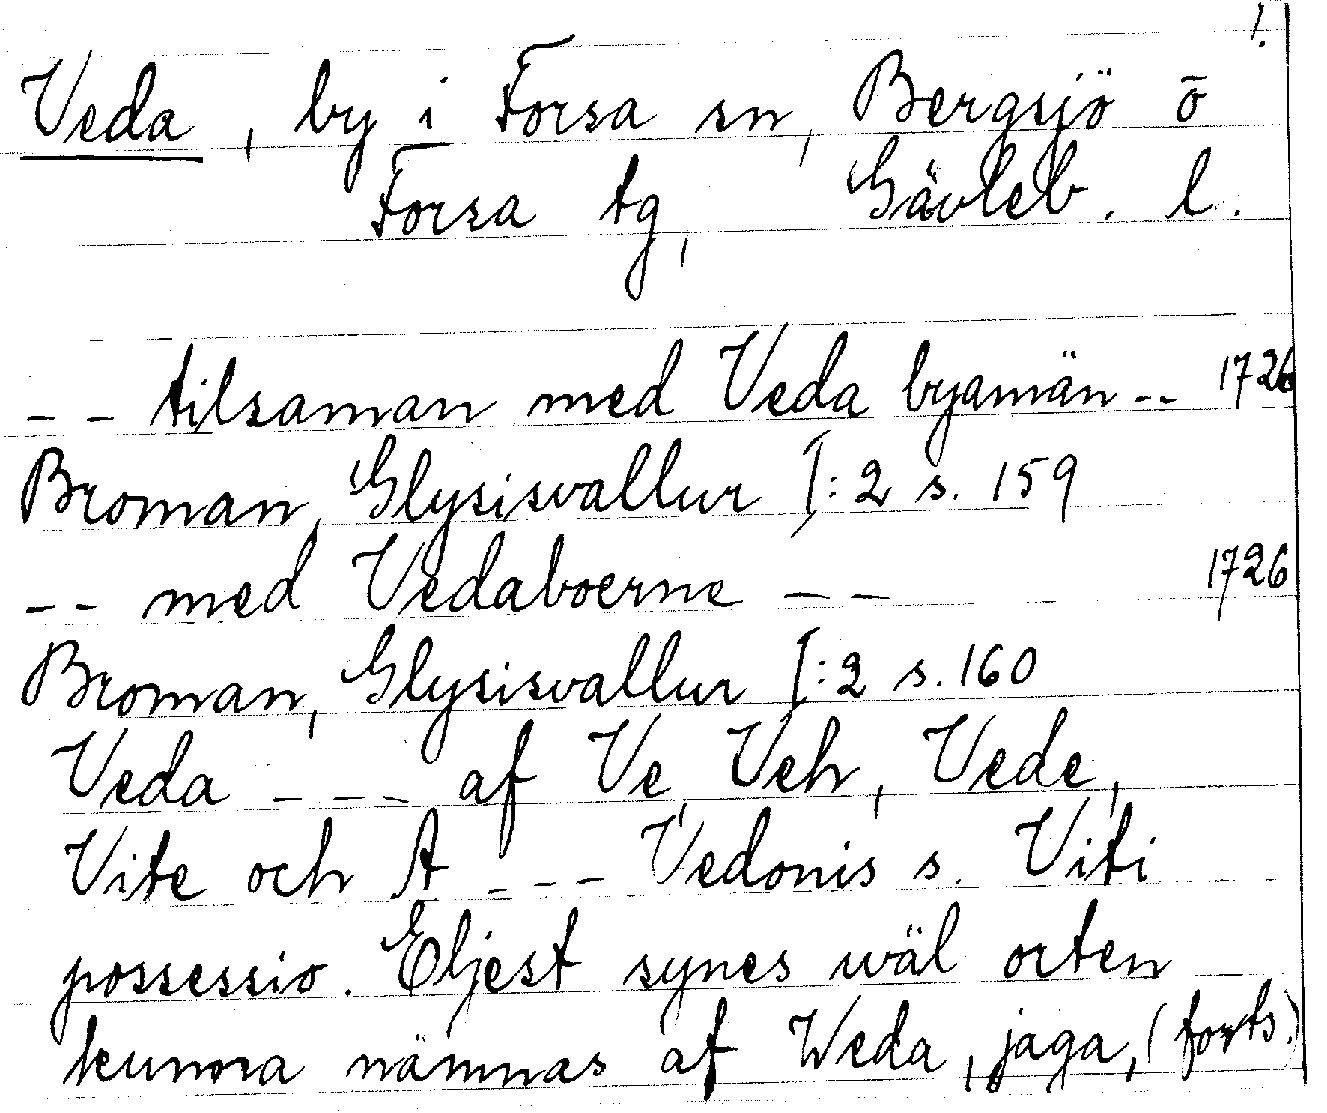 1.
Veda, by i Forsa sn, Bergsjö o
Forsa tg, Gävleb. l.
-- tilsaman med Veda byamän -- 1726
Broman, Glysisvallur I:2 s. 159
-- med Vedaboerne -- 1726
Broman, Glysisvallur I:2 s. 160
Veda --- af Ve, Veh, Vede,
Vite och A --- Vedonis s. Viti
possessio. Eljest synes wäl orten
kunna nämnas af Weda, jaga, (forts.)